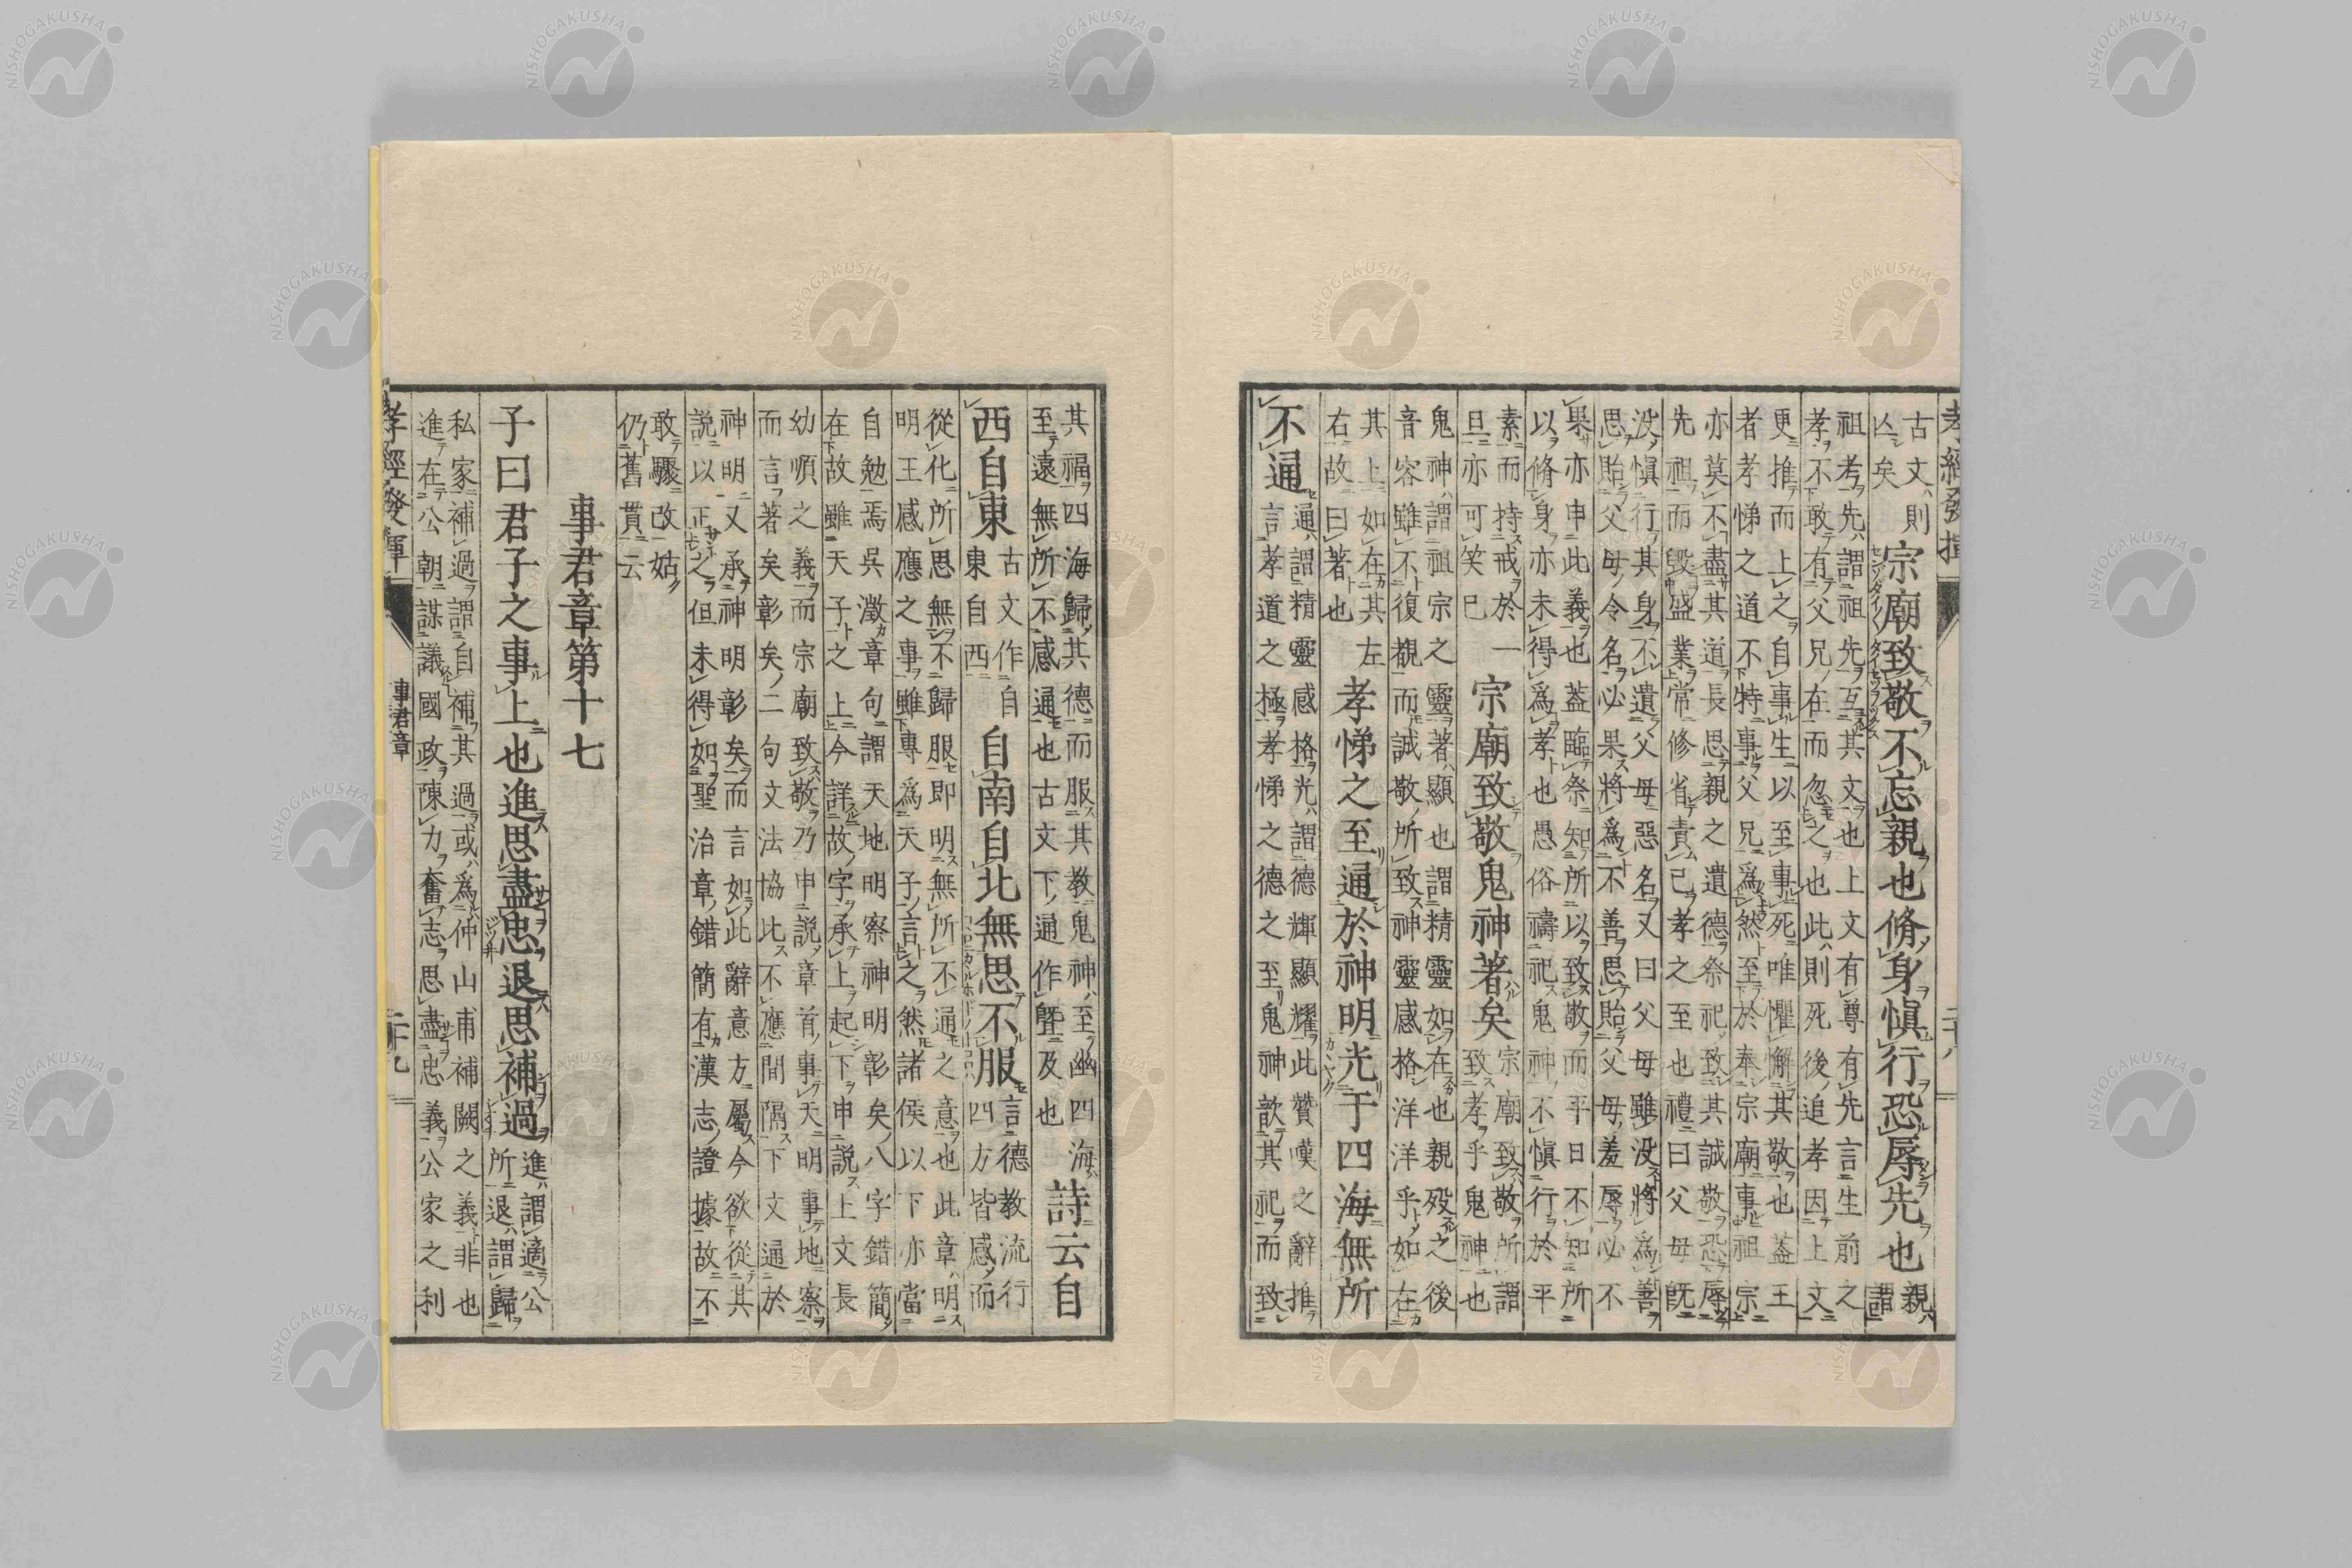 孝經發揮 二十八
古文則
凶矣
宗廟致敬不忘親也脩身愼行恐辱先也
親
謂
祖考先謂祖先互其文也上文有尊有先言生前之
孝不敢有父兄在而忽之也此則死後追孝因上文
更推而上之自事生以至事死唯懼懈其敬也蓋王
者孝悌之道不特事父兄爲然至於奉宗廟事祖宗
亦莫不盡其道長思親之遺德祭祀致其誠敬恐辱
先祖而毀盛業常修省責己孝之至也禮曰父母旣
没愼行其身不遺父母惡名又曰父母雖没將爲善
思貽父母令名必果將爲不善思貽父母羞辱必不
果亦申此義也蓋臨祭知所以致敬而平日不知所
以脩身亦未得爲孝也愚俗禱祀鬼神不愼行於平
素而持戒於一
旦亦可笑已
宗廟致敬鬼神著矣
宗廟致敬所謂
致孝乎鬼神也
鬼神謂祖宗之靈著顯也謂精靈如在也親歿之後
音容雖不復覩而誠敬所致神靈感格洋洋乎如在
其上如在其左
右故曰著也
孝悌之至通於神明光于四海無所
不通
通謂精靈感格光謂德輝顯耀此贊嘆之辭推
言孝道之極孝悌之德之至鬼神歆其祀而致
其福四海歸其德而服其教鬼神至幽四海
至遠無所不感通也古文下通作曁及也
詩云自
西自東
古文作自
東自西
自南自北無思不服
言德教流行
四方皆感而
從化所思無不歸服即明無所不通之意也此章明
明王感應之事雖專爲天子言之然諸侯以下亦當
自勉焉吳澂章句謂天地明察神明彰矣八字錯簡
在故雖天子之上今詳故字承上起下申說上文長
幼順之義而宗廟致敬乃申說章首事天明事地察
而言著矣彰矣二句文法協比不應間隔下文通於
神明又承神明彰矣而言如此辭意方屬今欲從其
説以正之但未得如聖治章錯簡有漢志證據故不
敢驟改姑
仍舊貫云
事君章第十七
子曰君子之事上也進思盡忠退思補過
進謂適公
所退謂歸
私家補過謂自補其過或爲仲山甫補闕之義非也
進在公朝謀議國政陳力奮志思盡忠義公家之利
孝經發揮 事君章 二十九